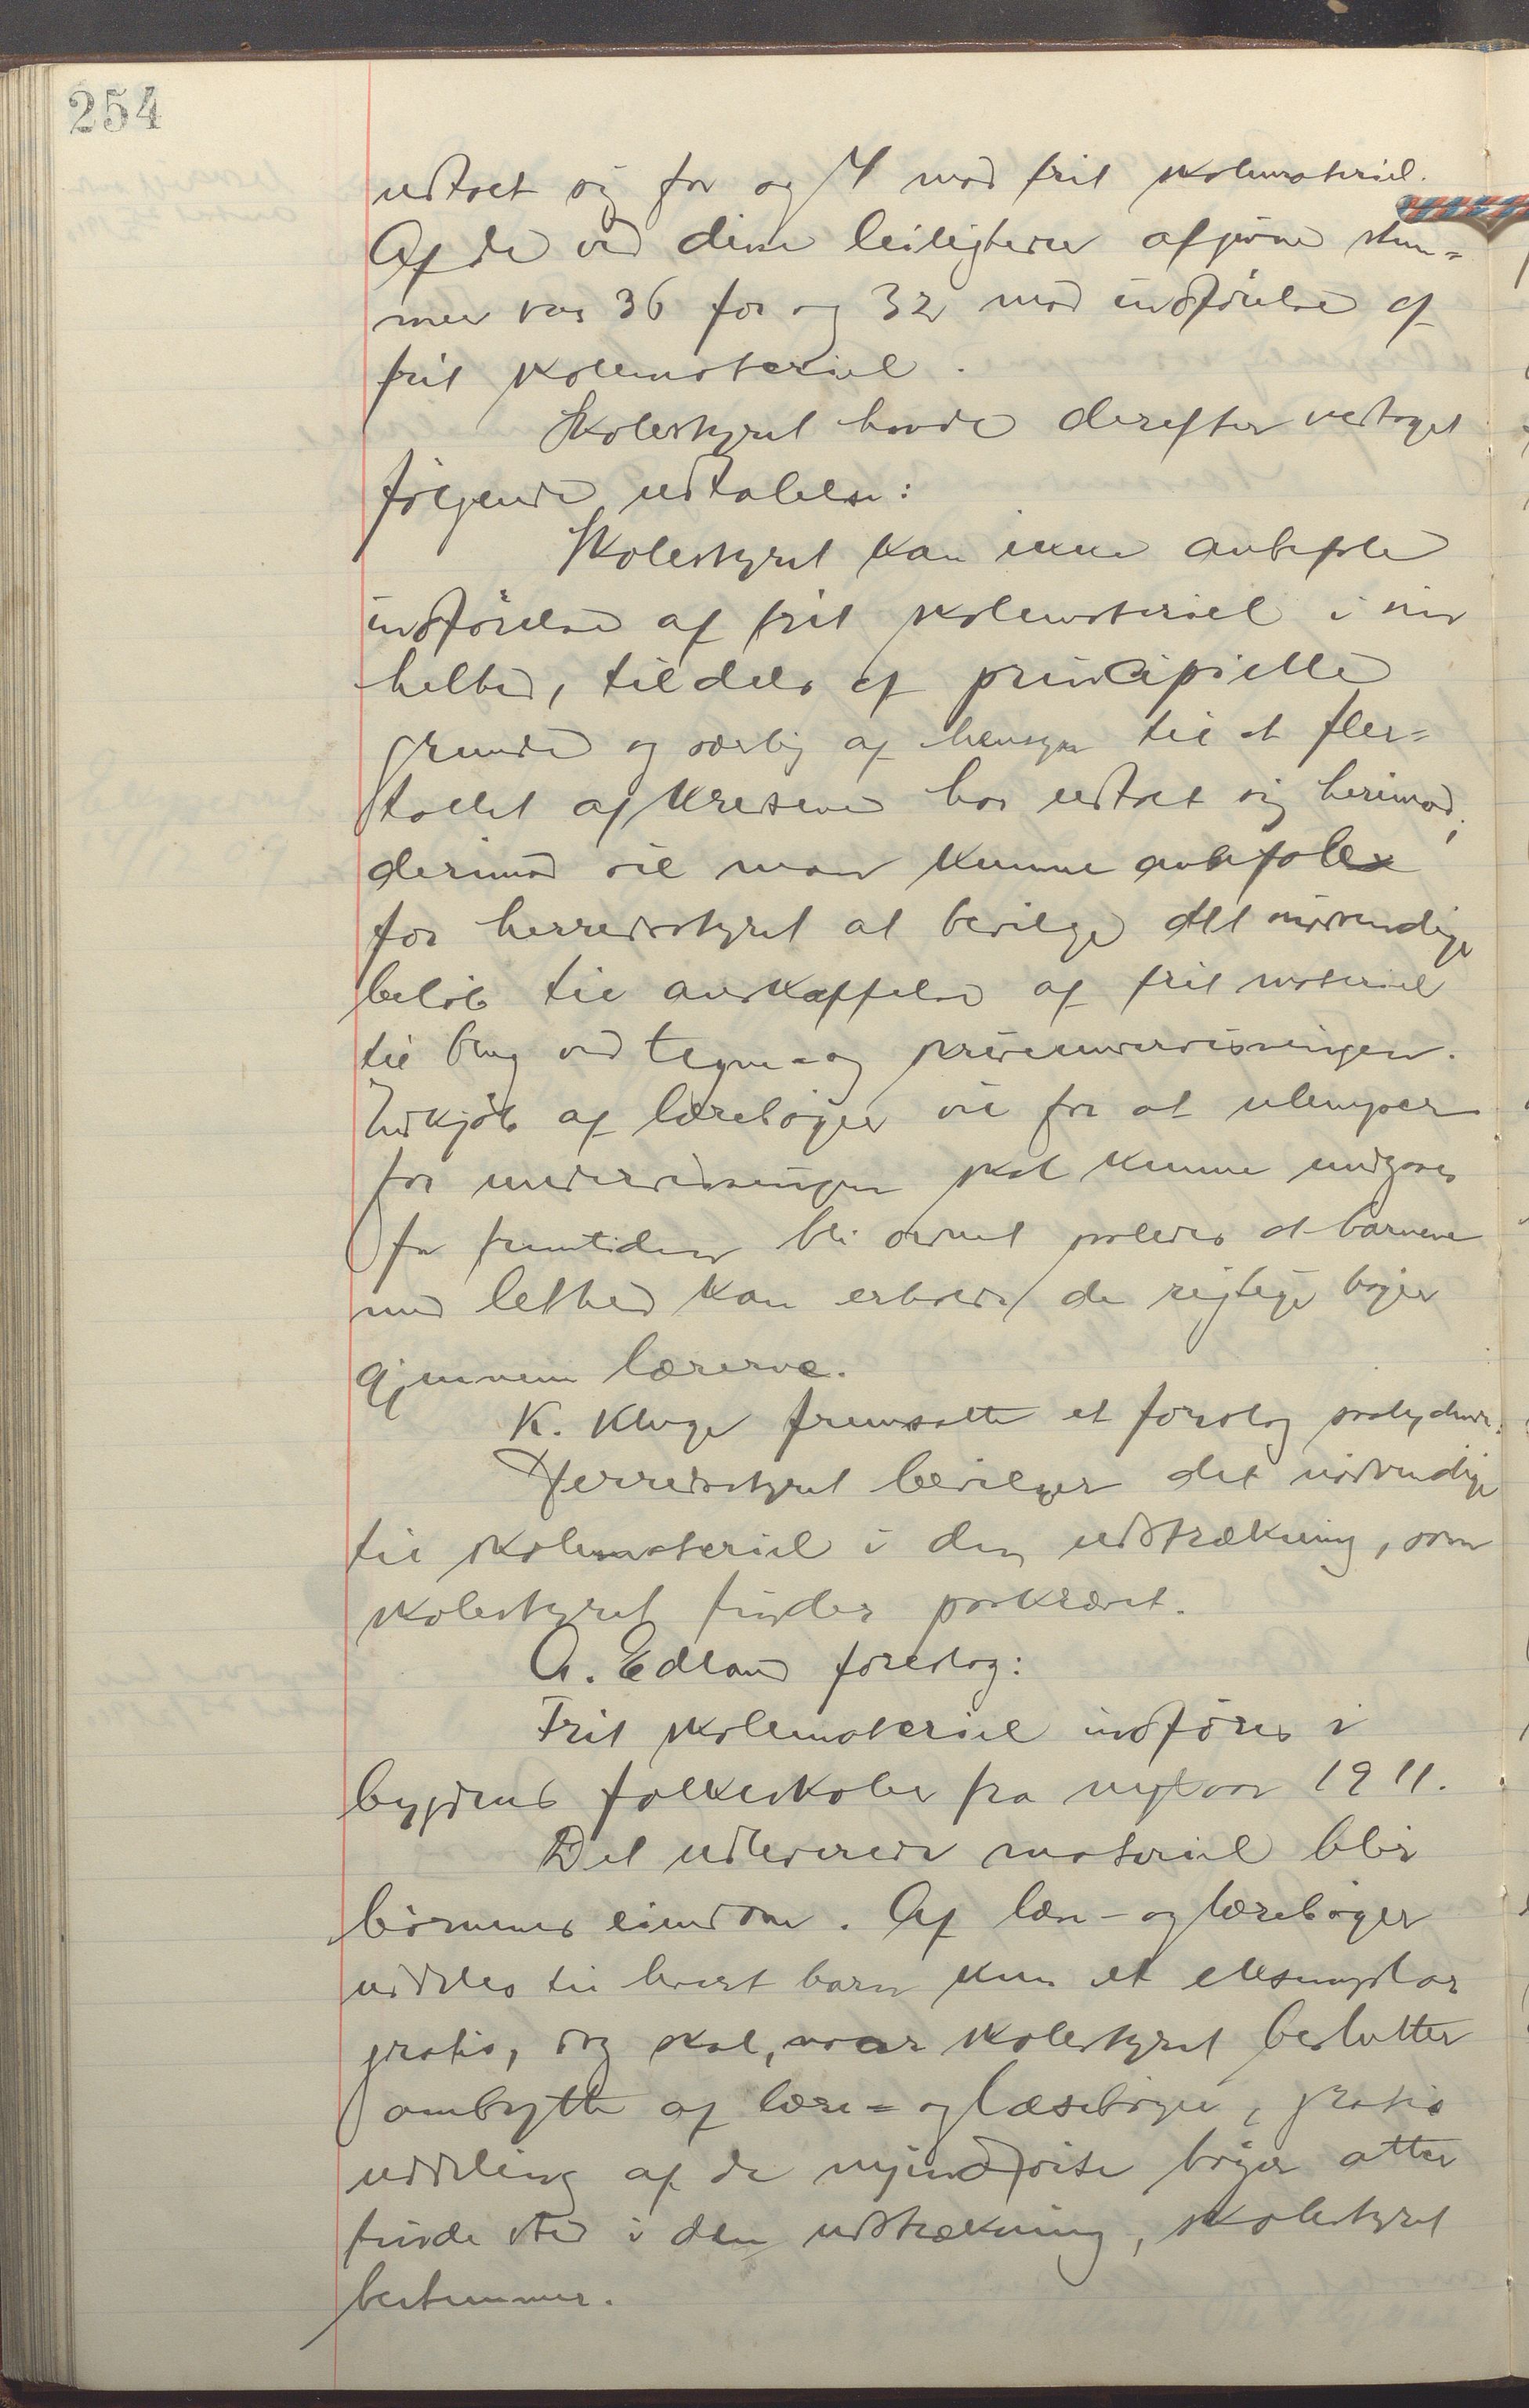 254
udtalt sig for og 4 mod frit skolemateriel.
Af de ved disse leiligheder afgivne stem=
mer var 36 for og 32 mod indførelse af
frit skolemateriel.
Skolestyret havde derefter vedtaget
følgende udtalelse:
Skolestyret kan ikke anbefale
indførelse af frit skolemateriel i sin
helhed, tildels af principielle
grunde og særlig af hensyn til at fler=
tallet af kredsene har udtalt sig herimod;
derimod vil man kunne anbefale
for herredsstyret at bevilge det nødvendige
beløb til anskaffelse af frit materiel
til brug ved tegne- og skriveundervisningen.
Indkjøb af lærebøger vil for at ulemper
for undervisningen skal kunne undgaaes
for fremtiden bli ordnet saaledes at barnene
med lethed kan erholde de rigtige bøger
gjennem lærerne.
K. Kluge fremsatte et forslag saalydende:
Herredsstyret bevilger det nødvendige
til skolemateriel i den udstrækning, som
skolestyret finder paakrævet.
A. Edland foreslog:
Frit skolemateriel indføres i
bygdens folkeskoler fra nytaar 1911.
Det udleverede materiel blir
børnenes eiendom. Af læse- og lærebøger
uddeles til hvert barn kun et eksemplar
gratis, dog skal, naar skolestyret beslutter
ombytte af lære= og læsebøger, gratis
uddeling af de nyindførte bøger atter
finde sted i den udstrækning, skolestyret
bestemmer.